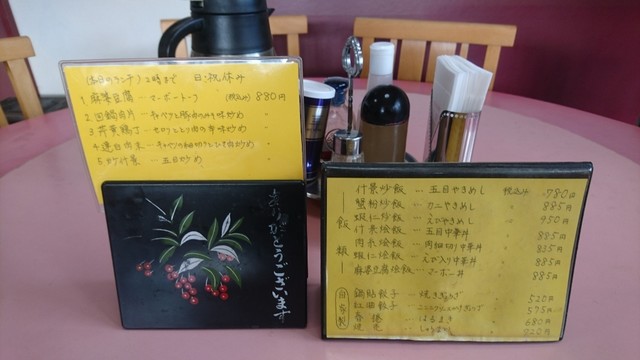 (本日のランチ) 2時まで 日・祝休み
1 麻婆豆腐 … マーボートーフ (税込み) 880円
2 回鍋肉片 … キャベツと豚肉の
3 … 炒め 〃
4 … 炒め 〃
5 炒什景 … 五目炒め 〃
ありがとうございます
飯類
什景炒飯 … 五目やきめし 税込み 780円
蟹粉炒飯 … カニやきめし 〃 885円
蝦仁炒飯 … えびやきめし 〃 950円
什景烩飯 … 五目中華丼 〃 885円
肉糸烩飯 … 肉細切り中華丼 〃 935円
蝦仁烩飯 … えび入り中華丼 〃 885円
麻婆豆腐烩飯 … マーボー丼 〃 885円
自家製
鍋貼餃子 … 焼きぎょうざ 520円
餃子 … 575円
春捲 … はるまき 680円
焼売 … しゅうまい 720円